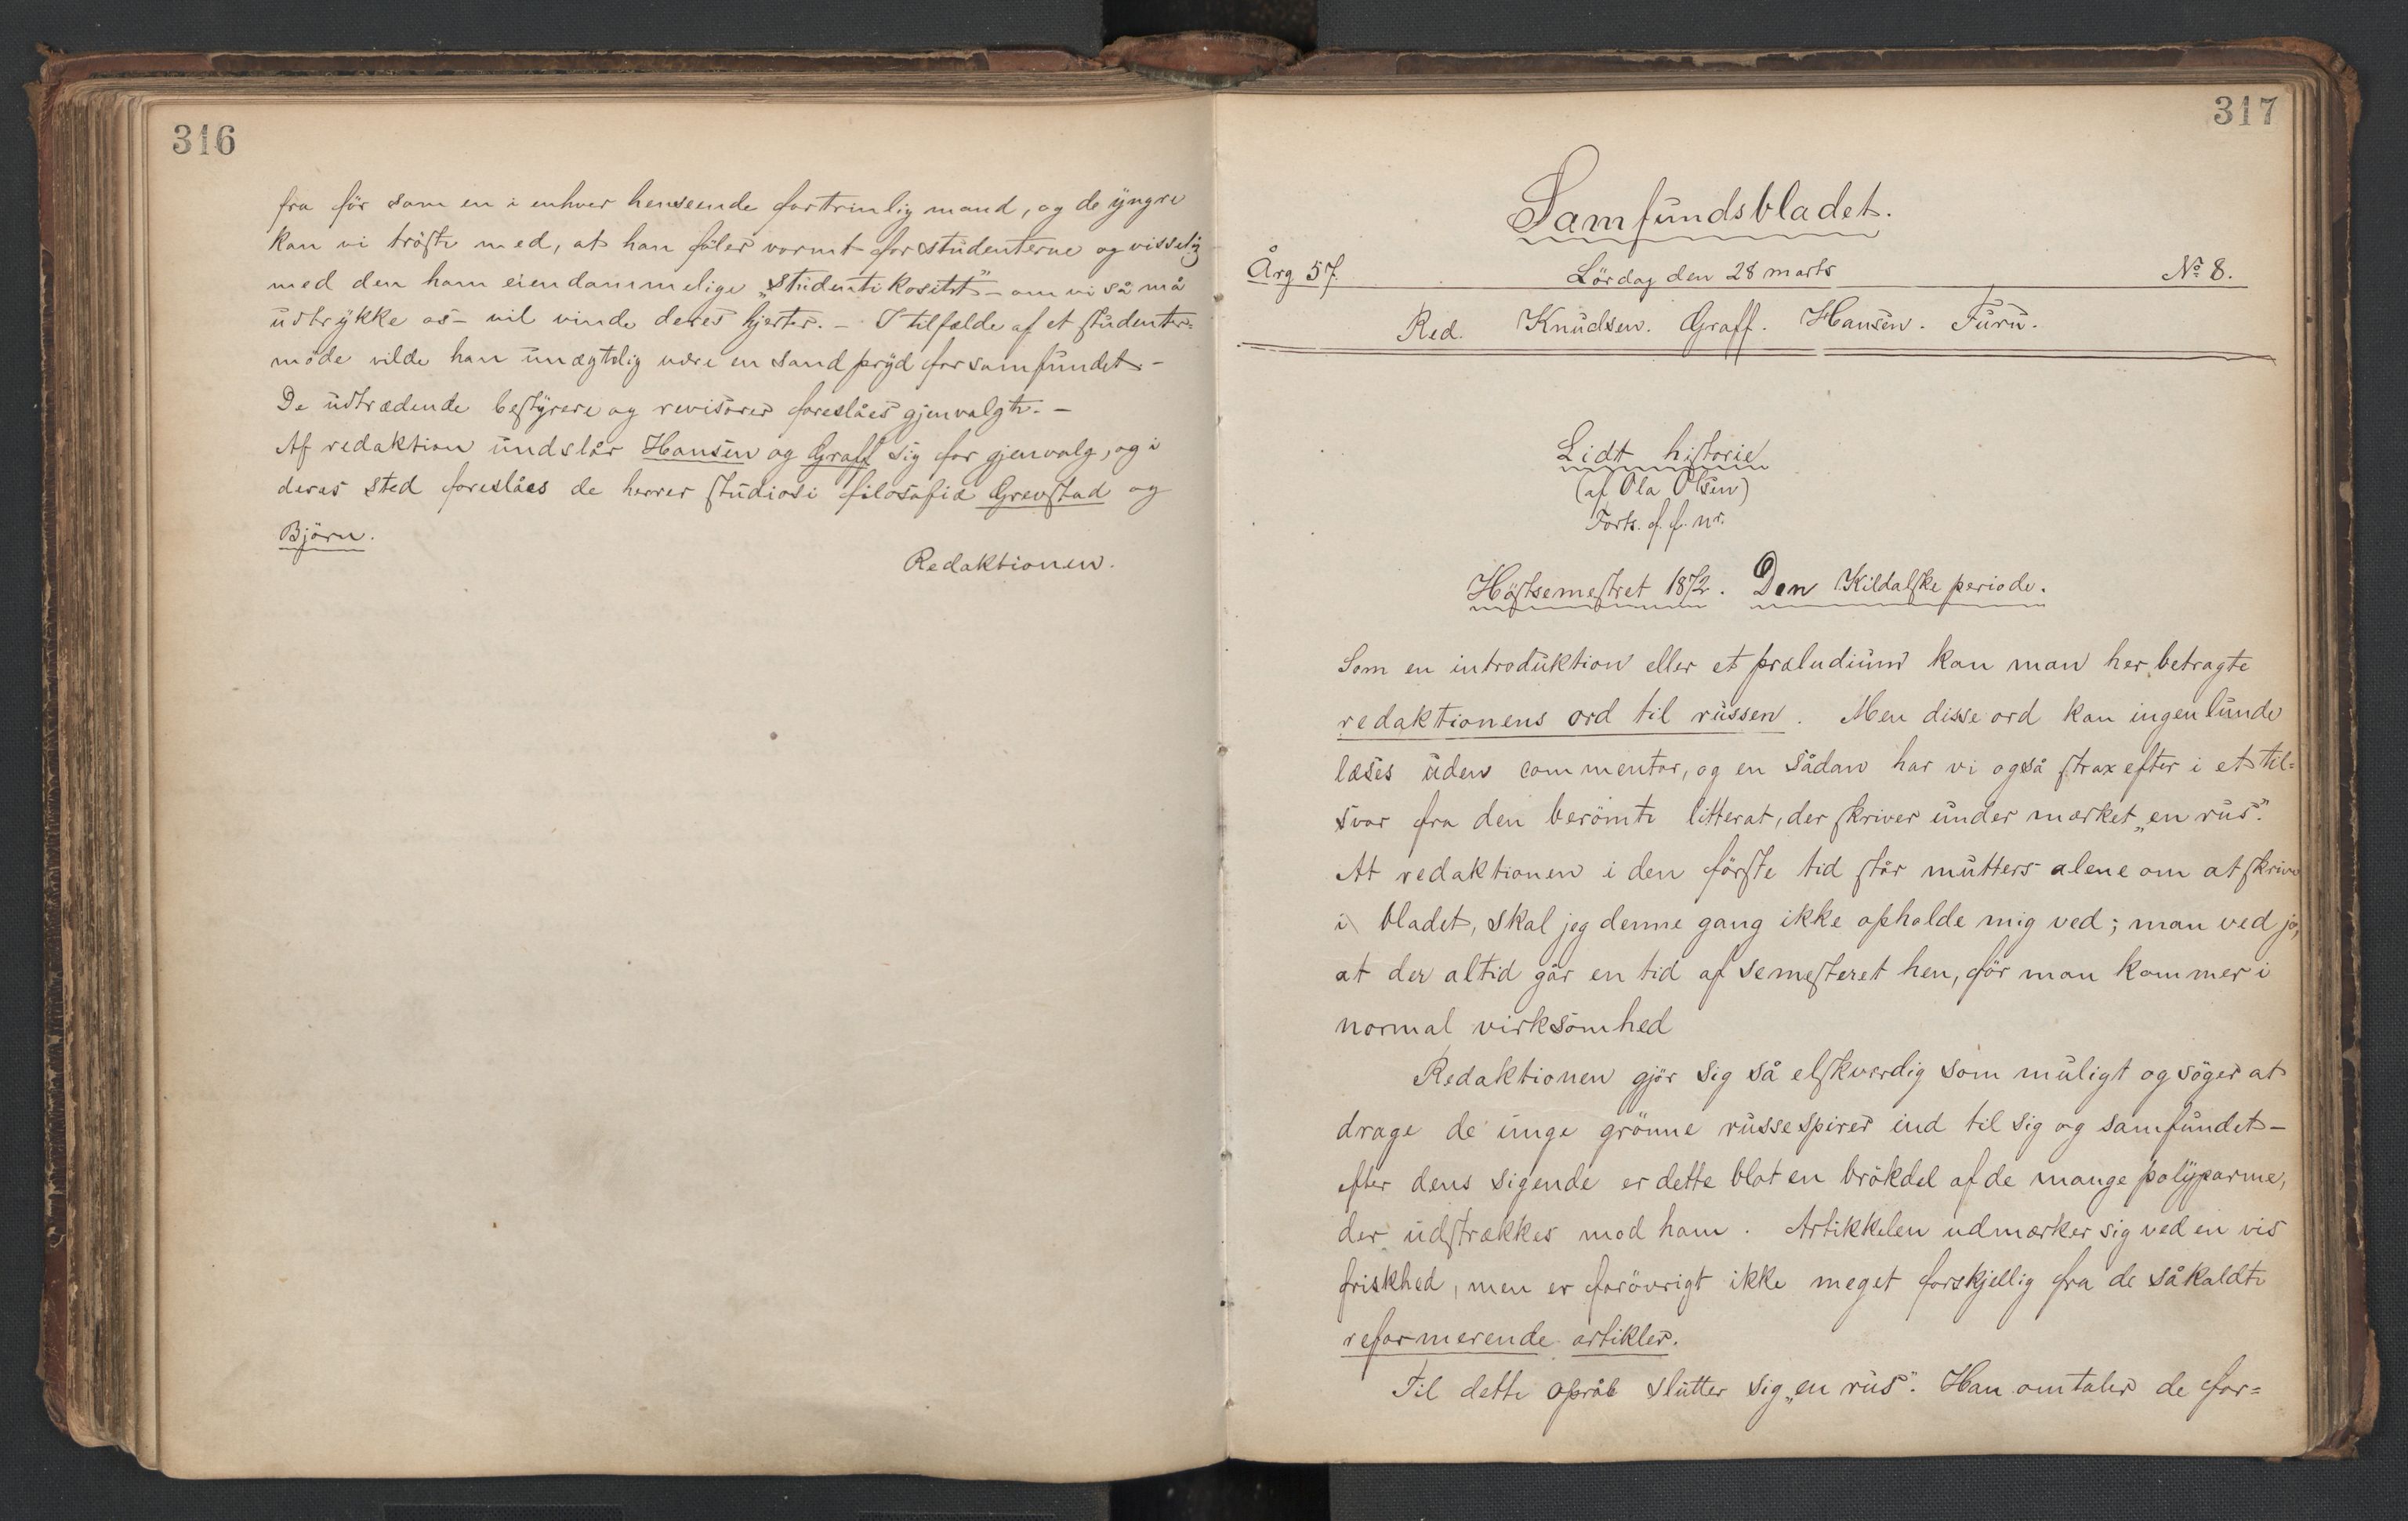 316
fra för som en i enhver henseende fortrinlig mand, og de yngre
kan vi tröste med, at han föler varmt for studenterne og visselig
med den ham eiendommelige „studentikositet” – om vi så må
udtrykke os – vil vinde deres hjerter. – I tilfælde af et studenter=
möde vilde han unægtelig være en sand pryd for samfundet. –
De udtrædende bestyrere og revisorer foreslåes gjenvalgte. –
Af redaktion undslår Hansen og Graff sig for gjenvalg, og i
deres sted foreslåes de herrer studiosi filosofiæ Grevstad og
Björn.
Redaktionen.
317
Samfundsbladet.
Årg 57. Lördag den 28 marts No 8.
Red. Knudsen. Graff. Hansen. Furu.
Lidt historie
(af Ola Olsen)
Forts. f. f. nr.
Höstsemestret 1872. Den Kildalske periode.
Som en introduktion eller et præludium kan man her betragte
redaktionens ord til russen. Men disse ord kan ingenlunde
læses uden commentar, og en sådan har vi også strax efter i et til=
svar fra den berömte litterat, der skriver under mærket „en rus”.
At redaktionen i den förste tid står mutters alene om at skrive
i bladet, skal jeg denne gang ikke opholde mig ved; man ved jo,
at der altid går en tid af semesteret hen, för man kommer i
normal virksomhed
Redaktionen gjör sig så elskværdig som muligt og söger at
drage de unge grönne russespirer ind til sig og samfundet –
efter dens sigende er dette blot en brökdel af de mange polyparme,
der udstrækkes mod ham. Artikkelen udmærker sig ved en vis
friskhed, men er forövrigt ikke meget forskjellig fra de såkaldte
reformerende artikler.
Til dette opråb slutter sig „en rus”. Han omtaler de for=